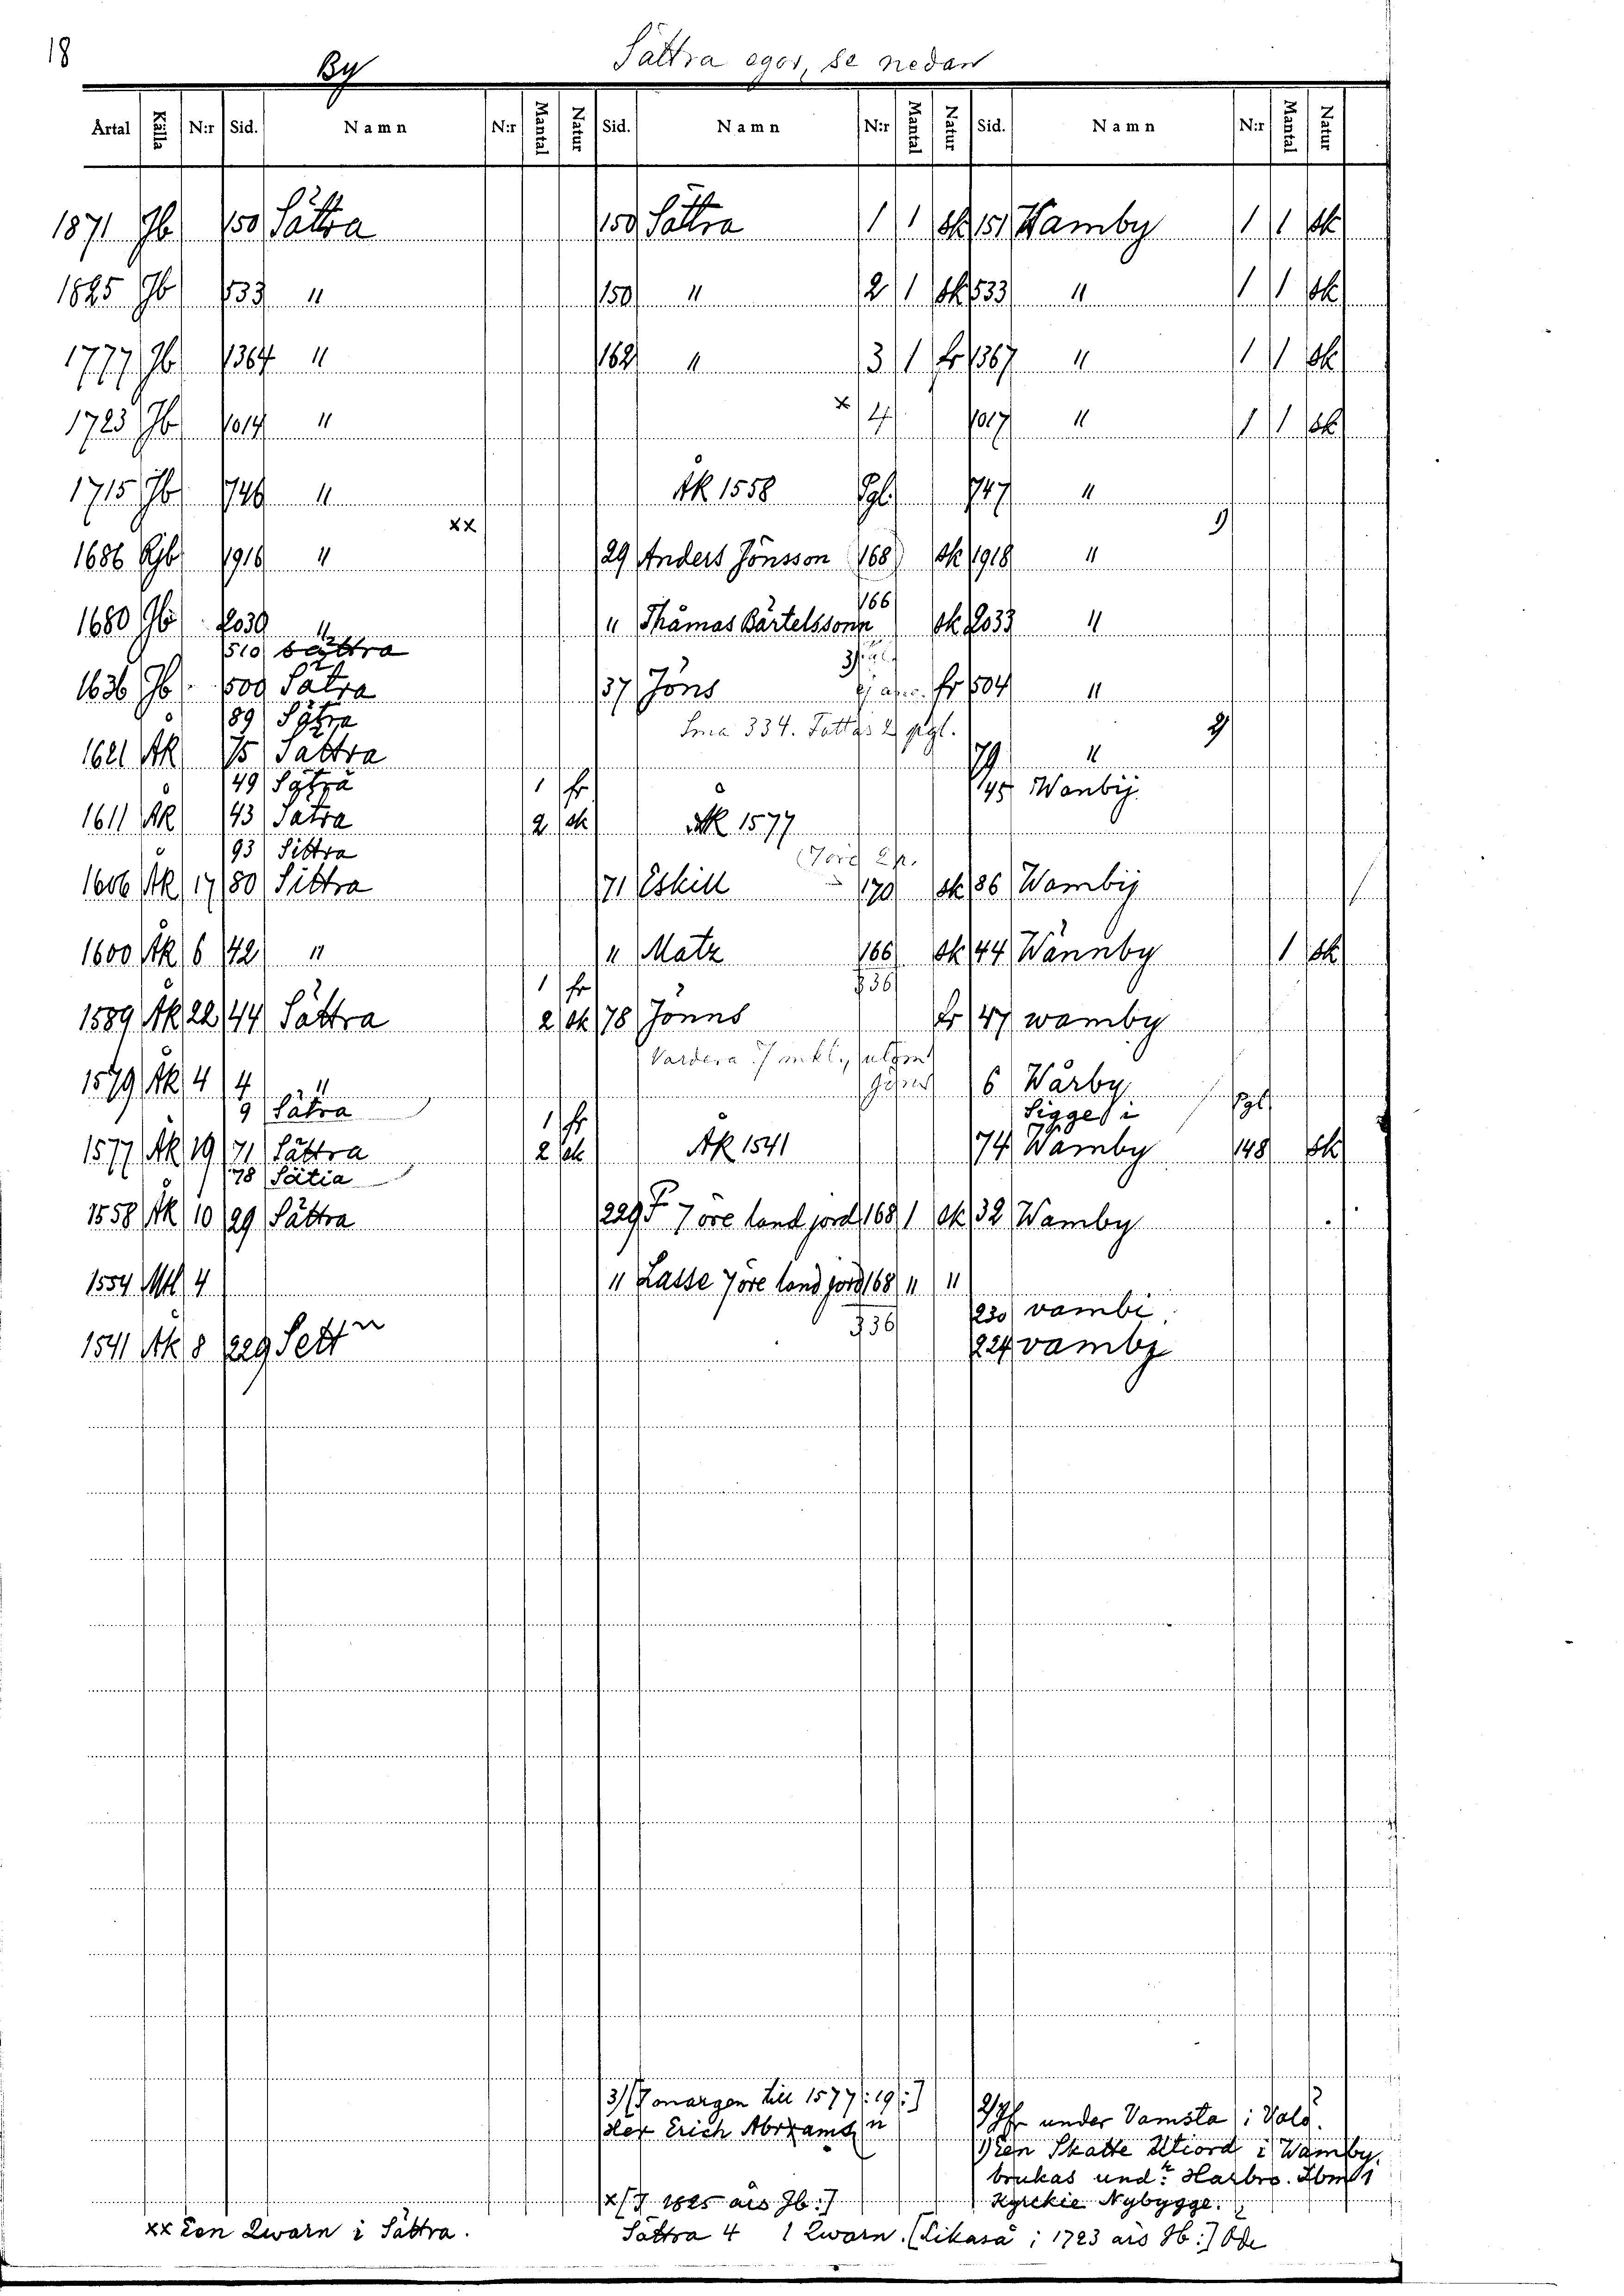 18
By
Sättra egor, se nedan
Årtal Källa N:r Sid. Namn N:r Mantal Natur Sid. Namn N:r Mantal Natur Sid. Namn N:r Mantal Natur
1871 Jb 150 Sättra 150 Sättra 1 1 sk 151 Wamby 1 1 sk
1825 Jb 533 " 150 " 2 1 sk 533 " 1 1 sk
1777 Jb 1364 " 162 " 3 1 fr 1367 " 1 1 sk
1723 Jb 1014 " x 4 1017 " 1 1 sk
1715 Jb 746 " ÅK 1558 Pgl. 747 "
xx 1)
1686 Rjb 1916 " 29 Anders Jönsson 168 sk 1918 "
166
1680 Jb 2030 " " Thåmas Bärtelssonn sk 2033 "
510 Sättra
3)
1636 Jb 500 Sätra 37 Jöns fr 504 "
89 Sätra Sma 334. 2)
1621 ÅK 75 Sattra 79 "
49 Sätra 1 fr 45 Wanbij
1611 ÅK 43 Satra 2 sk ÅK 1577
93 Sittra
1606 ÅK 17 80 Sittra 71 Eskill 170 sk 86 Wambij
1600 ÅK 6 42 " " Matz 166 sk 44 Wännby 1 sk
1 fr 336
1589 ÅK 22 44 Sättra 2 sk 78 Jönns fr 47 wamby
Vardera
1579 ÅK 4 4 " 6 Wårby
9 Sätra 1 fr Sigges i Pgl
1577 ÅK 19 71 Sättra 2 sk ÅK 1541 74 Wamby 148 sk
78 Sätia
1558 ÅK 10 29 Sättra 229 F 7 öre land jord 168 1 sk 32 Wamby
1554 Mtl 4 " Lasse 7 öre land jord 168 " "
230 vambi
1541 ÅK 8 229 Sett n 336 224 vambj
3) [I margen till 1577 [:19:]
der Erich Abramss n
2) under Vamsta i Valö.
1) Een Skatte Utiord i Wamby.
brukas und:r Harbro.
x [I 1825 års Jb:] Kyrckie Nybygge.
xx Een Qwarn i Sättra.
Sättra 4 1 Qwarn. [Likaså i 1723 års Jb:] Öde